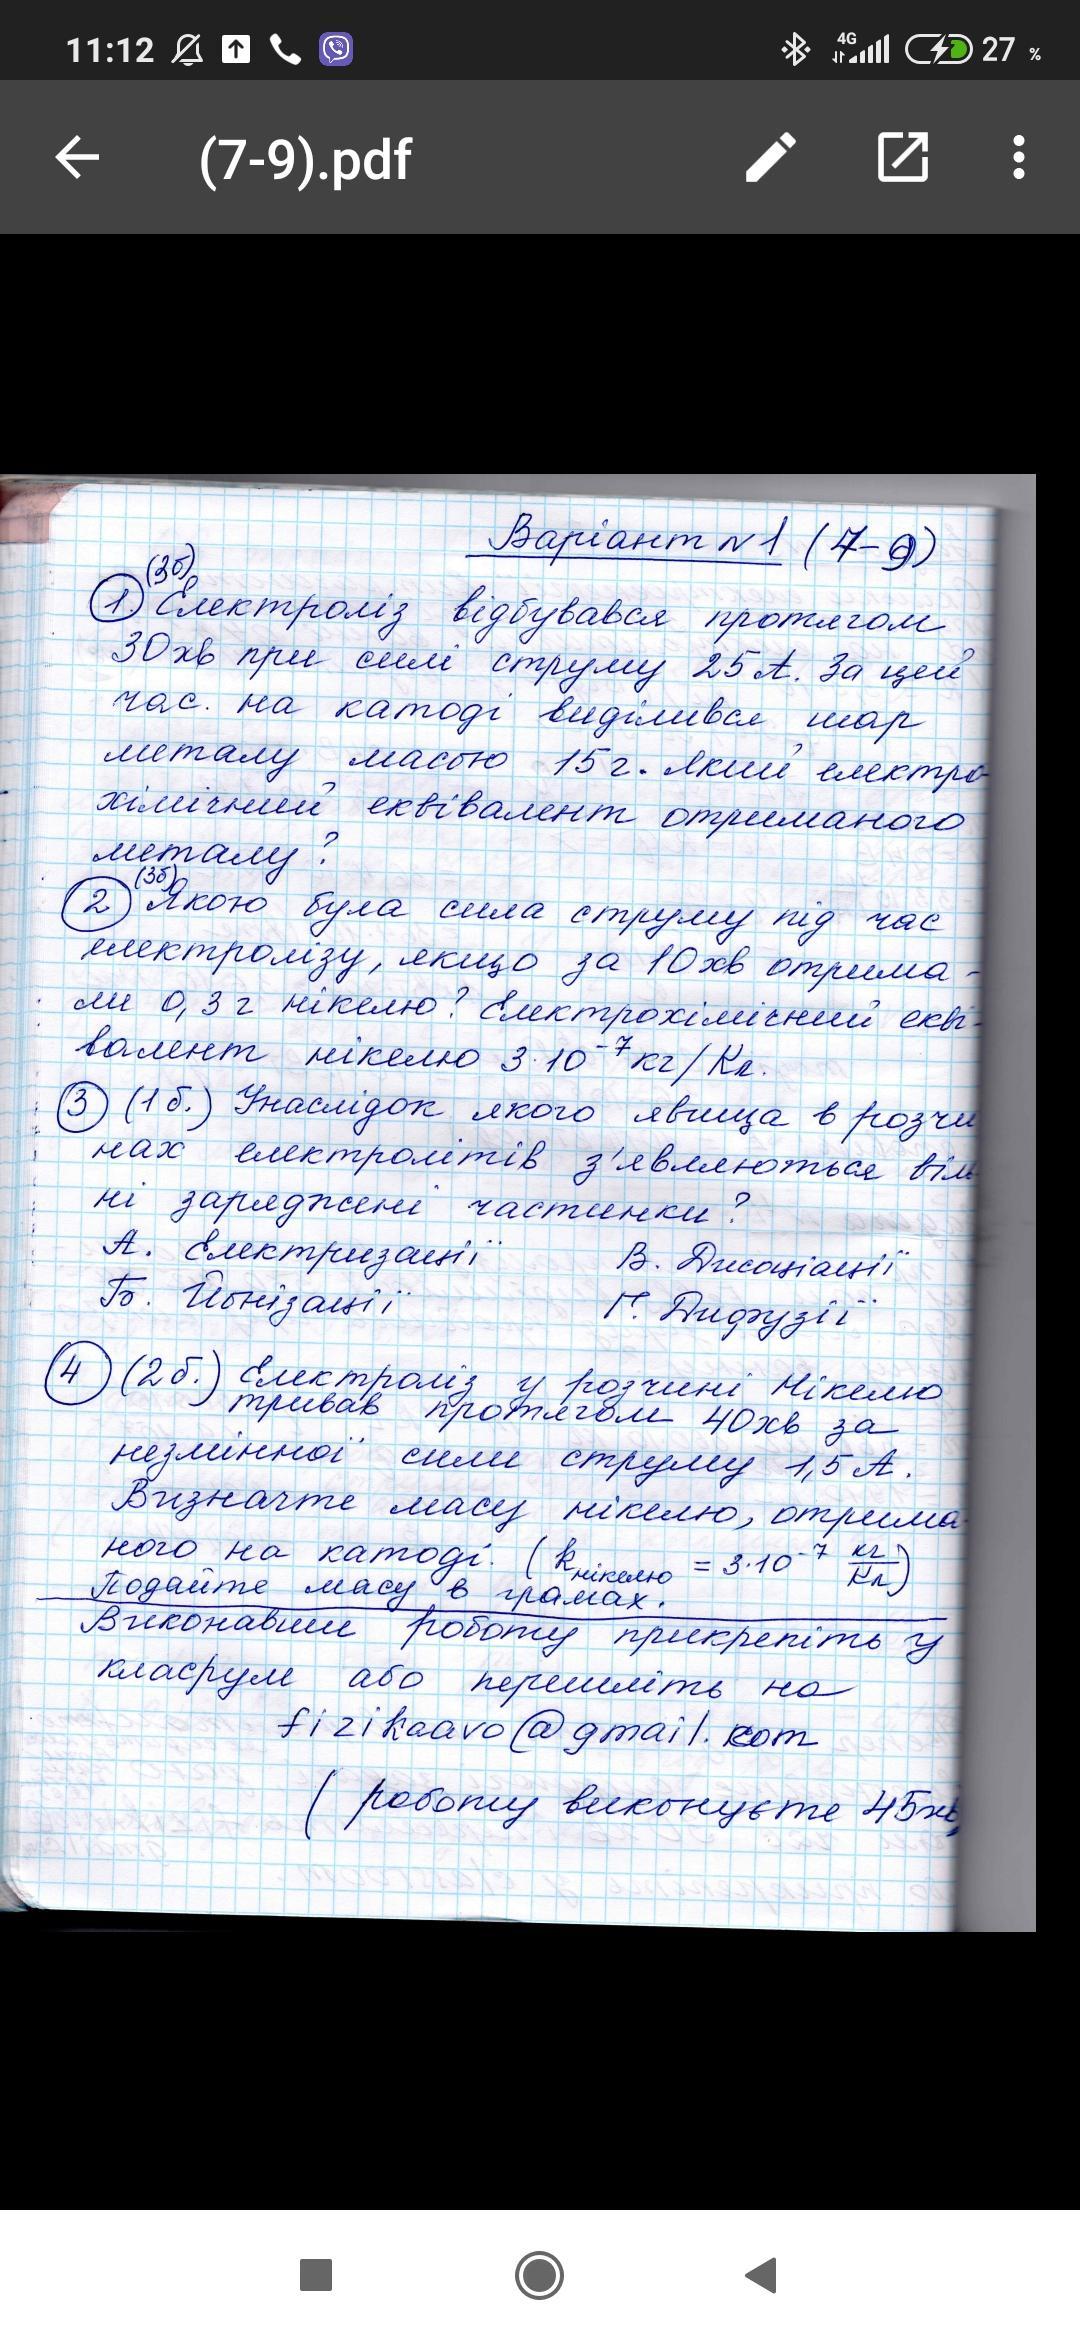 11:12 4G 27 %
(7-9).pdf
Варіант №1 (7-9)
(3б)
1. Електроліз відбувався протягом
30хв при силі струму 25А. За цей
час. на катоді виділився шар
металу масою 15г. Який електро
хімічний еквівалент отриманого
металу?
(3б)
2 Якою була сила струму під час
електролізу, якщо за 10хв отрима-
ли 0,3г нікелю? Електрохімічний екві-
валент нікелю 3·10⁻⁷кг/Кл.
3 (1б.) Унаслідок якого явища в розчи
нах електролітів з'являються віль
ні заряджені частинки?
А. Електризації В. Дисоціації
Б. Йонізації Г. Дифузії
4 (2б.) Електроліз у розчині Нікелю
тривав протягом 40хв за
незмінної сили струму 1,5А.
Визначте масу нікелю, отрима
ного на катоді. (kнікелю = 3·10⁻⁷ кг/Кл)
Подайте масу в грамах.
Виконавши роботу прикрепіть у
класрум або перешліть на
fizikaavo@gmail.com
(роботу виконуєте 45хв)